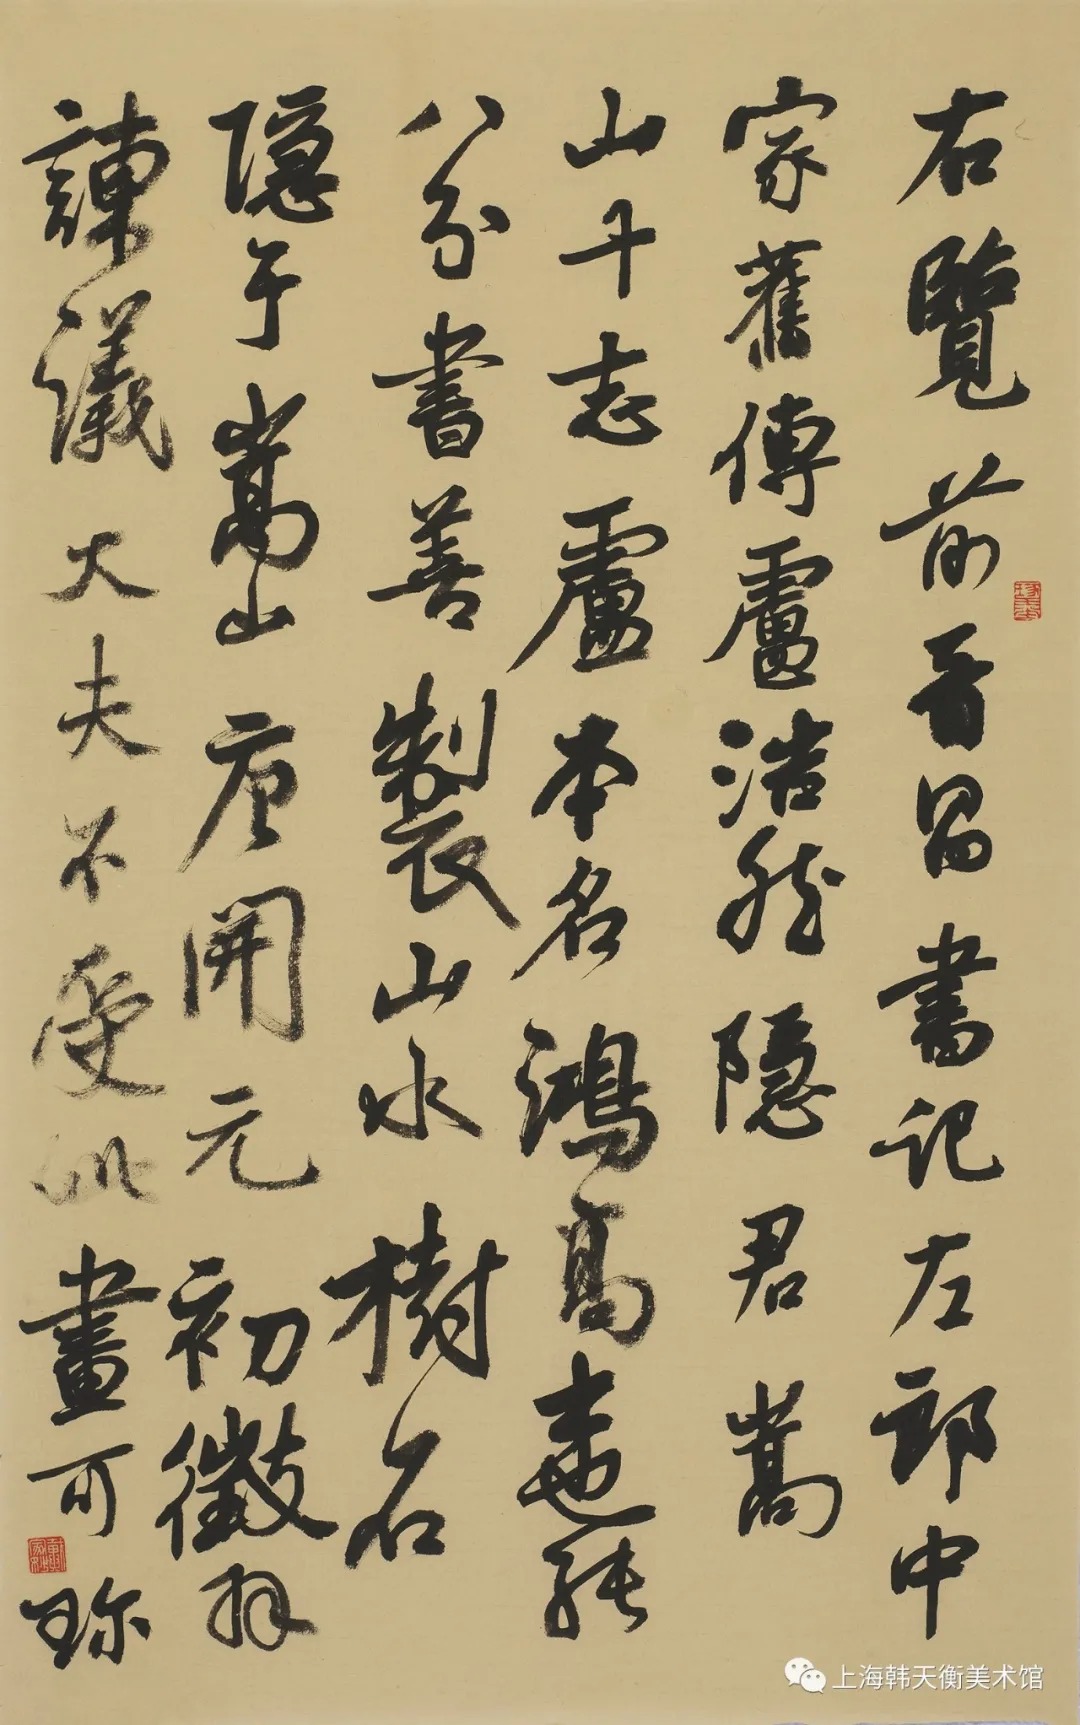 右覽前晉昌書記左郎中
家舊傳盧浩然隱君嵩
山十志盧本名鴻高士也能
八分書善製山水樹石
隱于嵩山唐開元初徵拜
諫議大夫不受此畫可珍
上海韩天衡美术馆